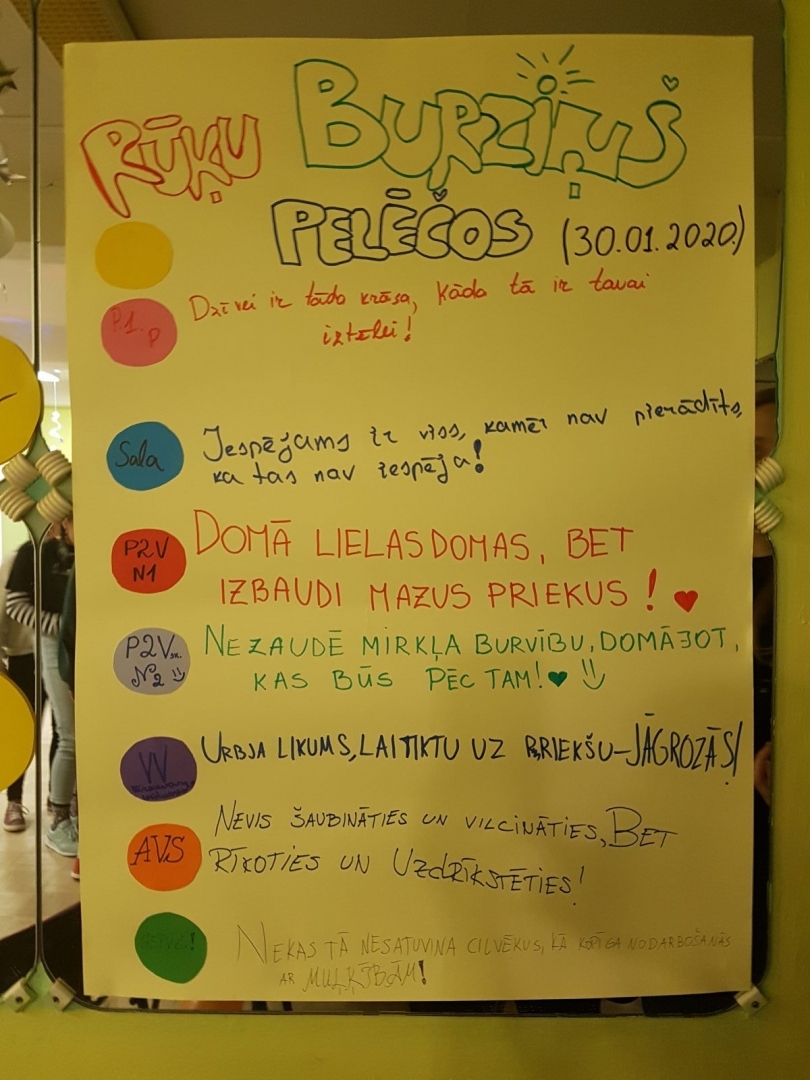 RŪĶU BURZIŅŠ
PELĒČOS (30.01.2020.)
P.1.P
Dzīvei ir tāda krāsa, kāda tā ir tavai
iztēlei!
Sala
Iespējams ir viss, kamēr nav pierādīts,
ka tas nav iespēja!
P2V
N1
DOMĀ LIELAS DOMAS, BET
IZBAUDI MAZUS PRIEKUS!
P2Vsk.
N2
NEZAUDĒ MIRKĻA BURVĪBU, DOMĀJOT,
KAS BŪS PĒC TAM!
W
URBJA LIKUMS, LAI TIKTU UZ PRIEKŠU–JĀGROZĀS!
AVS
NEVIS ŠAUBINĀTIES UN VILCINĀTIES, BET
RĪKOTIES UN UZDRĪKSTĒTIES!
NEKAS TĀ NESATUVINA CILVĒKUS, KĀ KOPĪGA NODARBOŠANĀS
AR MUĻĶĪBĀM!